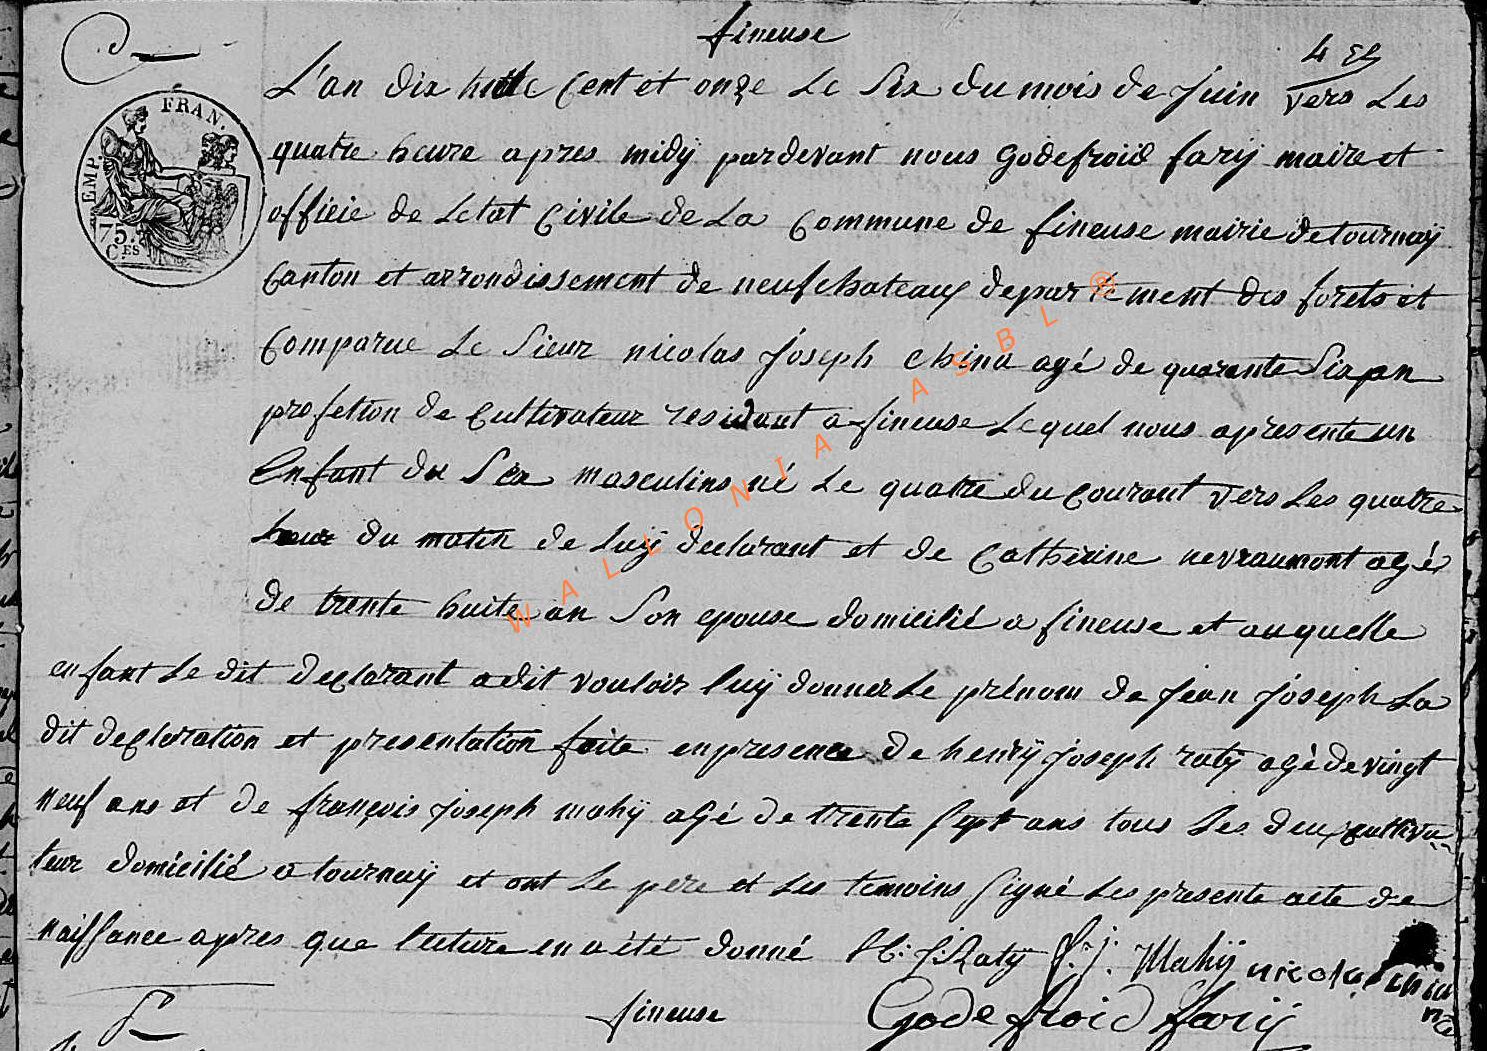 fineuse
L'an dix huite Cent et onze Le Six du mois de Juin vers Les
quatre heure apres midÿ pardevant nous Godefroid farÿ maire et
EMP. FRAN.
75. CES
officie de Letat Civile de La Commune de fineuse mairie de tournaÿ
Canton et arrondissement de neufchateaux departement des forets et
Comparue Le Sieur nicolas Joseph China agé de quarante Six an
profetion de Cultivateur residant a fineuse Lequel nous apresente un
Enfant du Sex masculins né Le quatre du Courant vers Les quatre
heur du matin de Luÿ declarant et de Catherine nevraumont agé
de trente huite an Son epouse domicilié a fineuse et auquelle
enfant Le dit declarant adit vouloir luÿ donner Le prénom de Jean Joseph La
dit declaration et presentation faite enpresence de henrÿ Joseph ratÿ agé de vingt
neuf ans et de françois Joseph mahÿ agé de trente Sept ans tous Les deux cultiva
teur domicilié a tournaÿ et ont Le pere et Les temoins Signé Les presente acte de
naissance apres que lecture en a été donné H. J. Ratÿ f. j. Mahÿ nicolas chi
na
fineuse Godefroid farÿ
WALLONIA ASBL ®